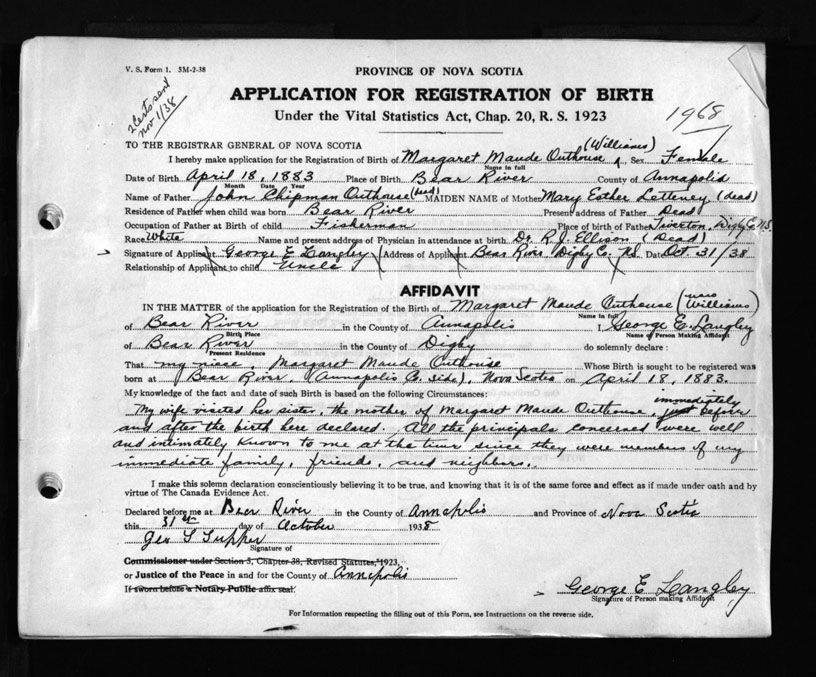 V. S. Form 1. 5M-2-38
PROVINCE OF NOVA SCOTIA
APPLICATION FOR REGISTRATION OF BIRTH
Under the Vital Statistics Act, Chap. 20, R. S. 1923
2 Certs sent
Nov 1/38
1968
TO THE REGISTRAR GENERAL OF NOVA SCOTIA
I hereby make application for the Registration of Birth of Margaret Maude Outhouse (Williams) Sex Female
Name in full
Date of Birth April 18, 1883 Place of Birth Bear River County of Annapolis
Month Date Year
Name of Father John Chipman Outhouse (dead) MAIDEN NAME of Mother Mary Esther Letteney (dead)
Residence of Father when child was born Bear River Present address of Father Dead
Occupation of Father at Birth of child Fisherman Place of birth of Father Tiverton, Digby Co. N.S.
Race White Name and present address of Physician in attendance at birth Dr. R. J. Ellison (Dead)
Signature of Applicant George E. Langley Address of Applicant Bear River Digby Co. N.S. Date Oct. 31/38
Relationship of Applicant to child Uncle
AFFIDAVIT
IN THE MATTER of the application for the Registration of the Birth of Margaret Maude Outhouse (now Williams)
Name in full
of Bear River in the County of Annapolis I, George E. Langley
Birth Place Name of Person Making Affidavit
of Bear River in the County of Digby do solemnly declare:
Present Residence
That my niece Margaret Maude Outhouse Whose Birth is sought to be registered was
born at Bear River, (Annapolis Co. side), Nova Scotia on April 18, 1883.
My knowledge of the fact and date of such Birth is based on the following Circumstances:
My wife visited her sister, the mother of Margaret Maude Outhouse, just immediately before
and after the birth here declared. All the principals concerned were well
and intimately known to me at the time since they were members of my
immediate family, friends, and neighbors.
I make this solemn declaration conscientiously believing it to be true, and knowing that it is of the same force and effect as if made under oath and by
virtue of The Canada Evidence Act.
Declared before me at Bear River in the County of Annapolis and Province of Nova Scotia
this 31st day of October 1938
Geo S Tupper
Signature of
Commissioner under Section 5, Chapter 38, Revised Statutes, 1923,
or Justice of the Peace in and for the County of Annapolis
If sworn before a Notary Public affix seal.
George E Langley
Signature of Person making Affidavit
For Information respecting the filling out of this Form, see Instructions on the reverse side.